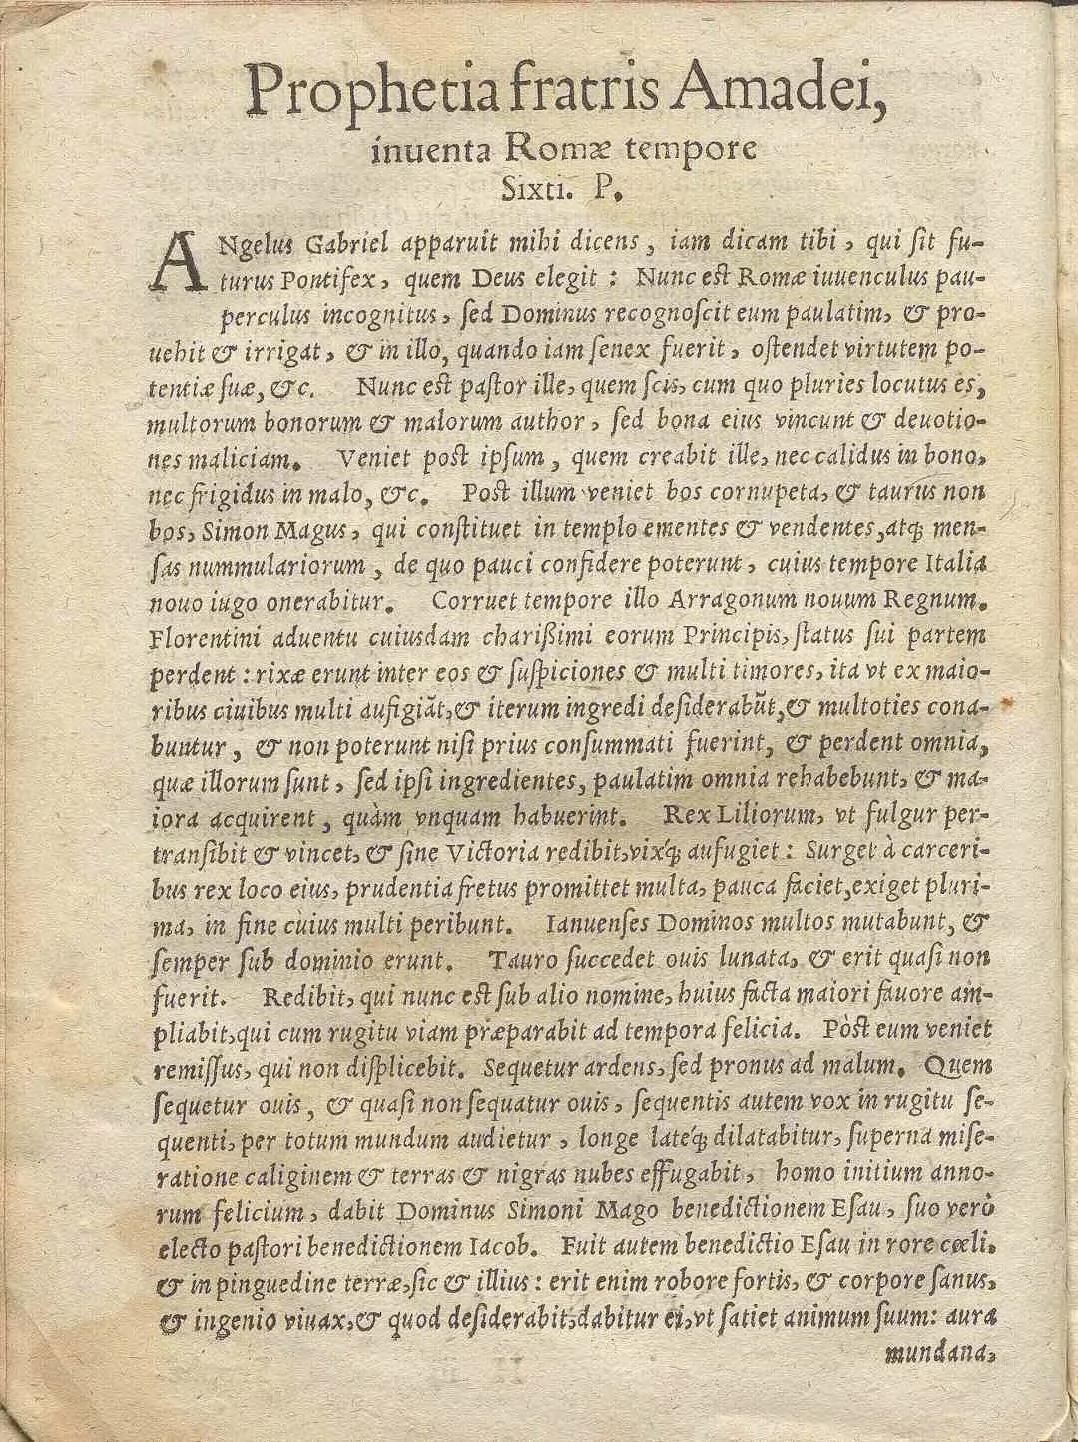 Prophetia fratris Amadei,
inuenta Romæ tempore
Sixti. P.
ANgelus Gabriel apparuit mihi dicens, iam dicam tibi, qui ſit fu-
turus Pontifex, quem Deus elegit : Nunc est Romæ iuuenculus pau-
perculus incognitus, ſed Dominus recognoſcit eum paulatim, & pro-
uehit & irrigat, & in illo, quando iam ſenex fuerit, oſtendet virtutem po-
tentiæ ſuæ, &c. Nunc eſt paſtor ille, quem ſcis, cum quo pluries locutus es,
multorum bonorum & malorum author, ſed bona eius vincunt & deuotio-
nes maliciam. Veniet poſt ipſum, quem creabit ille, nec calidus in bono,
nec frigidus in malo, &c. Poſt illum veniet bos cornupeta, & taurus non
bos, Simon Magus, qui conſtituet in templo ementes & vendentes, atq; men-
ſas nummulariorum, de quo pauci confidere poterunt, cuius tempore Italia
nouo iugo onerabitur. Corruet tempore illo Arragonum nouum Regnum.
Florentini aduentu cuiusdam charißimi eorum Principis, ſtatus ſui partem
perdent : rixæ erunt inter eos & ſuſpiciones & multi timores, ita vt ex maio-
ribus ciuibus multi aufigiāt, & iterum ingredi deſiderabūt, & multoties cona-
buntur, & non poterunt niſi prius conſummati fuerint, & perdent omnia,
quæ illorum ſunt, ſed ipſi ingredientes, paulatim omnia rehabebunt, & ma-
iora acquirent, quàm vnquam habuerint. Rex Liliorum, vt fulgur per-
tranſibit & vincet, & ſine Victoria redibit, vixq́; aufugiet : Surget à carceri-
bus rex loco eius, prudentia fretus promittet multa, pauca faciet, exiget pluri-
ma, in fine cuius multi peribunt. Ianuenſes Dominos multos mutabunt, &
ſemper ſub dominio erunt. Tauro ſuccedet ouis lunata, & erit quaſi non
fuerit. Redibit, qui nunc est ſub alio nomine, huius facta maiori fauore am-
pliabit, qui cum rugitu viam præparabit ad tempora felicia. Pòſt eum veniet
remiſſus, qui non diſplicebit. Sequetur ardens, ſed pronus ad malum. Quem
ſequetur ouis, & quaſi non ſequatur ouis, ſequentis autem vox in rugitu ſe-
quenti, per totum mundum audietur, longe lateq́; dilatabitur, ſuperna miſe-
ratione caliginem & terras & nigras nubes effugabit, homo initium anno-
rum felicium, dabit Dominus Simoni Mago benedictionem Eſau, ſuo verò
electo paſtori benedictionem Iacob. Fuit autem benedictio Eſau in rore cœli.
& in pinguedine terræ, ſic & illius : erit enim robore fortis, & corpore ſanus,
& ingenio viuax, & quod deſiderabit, dabitur ei, vt ſatiet animum ſuum: aura
mundana,